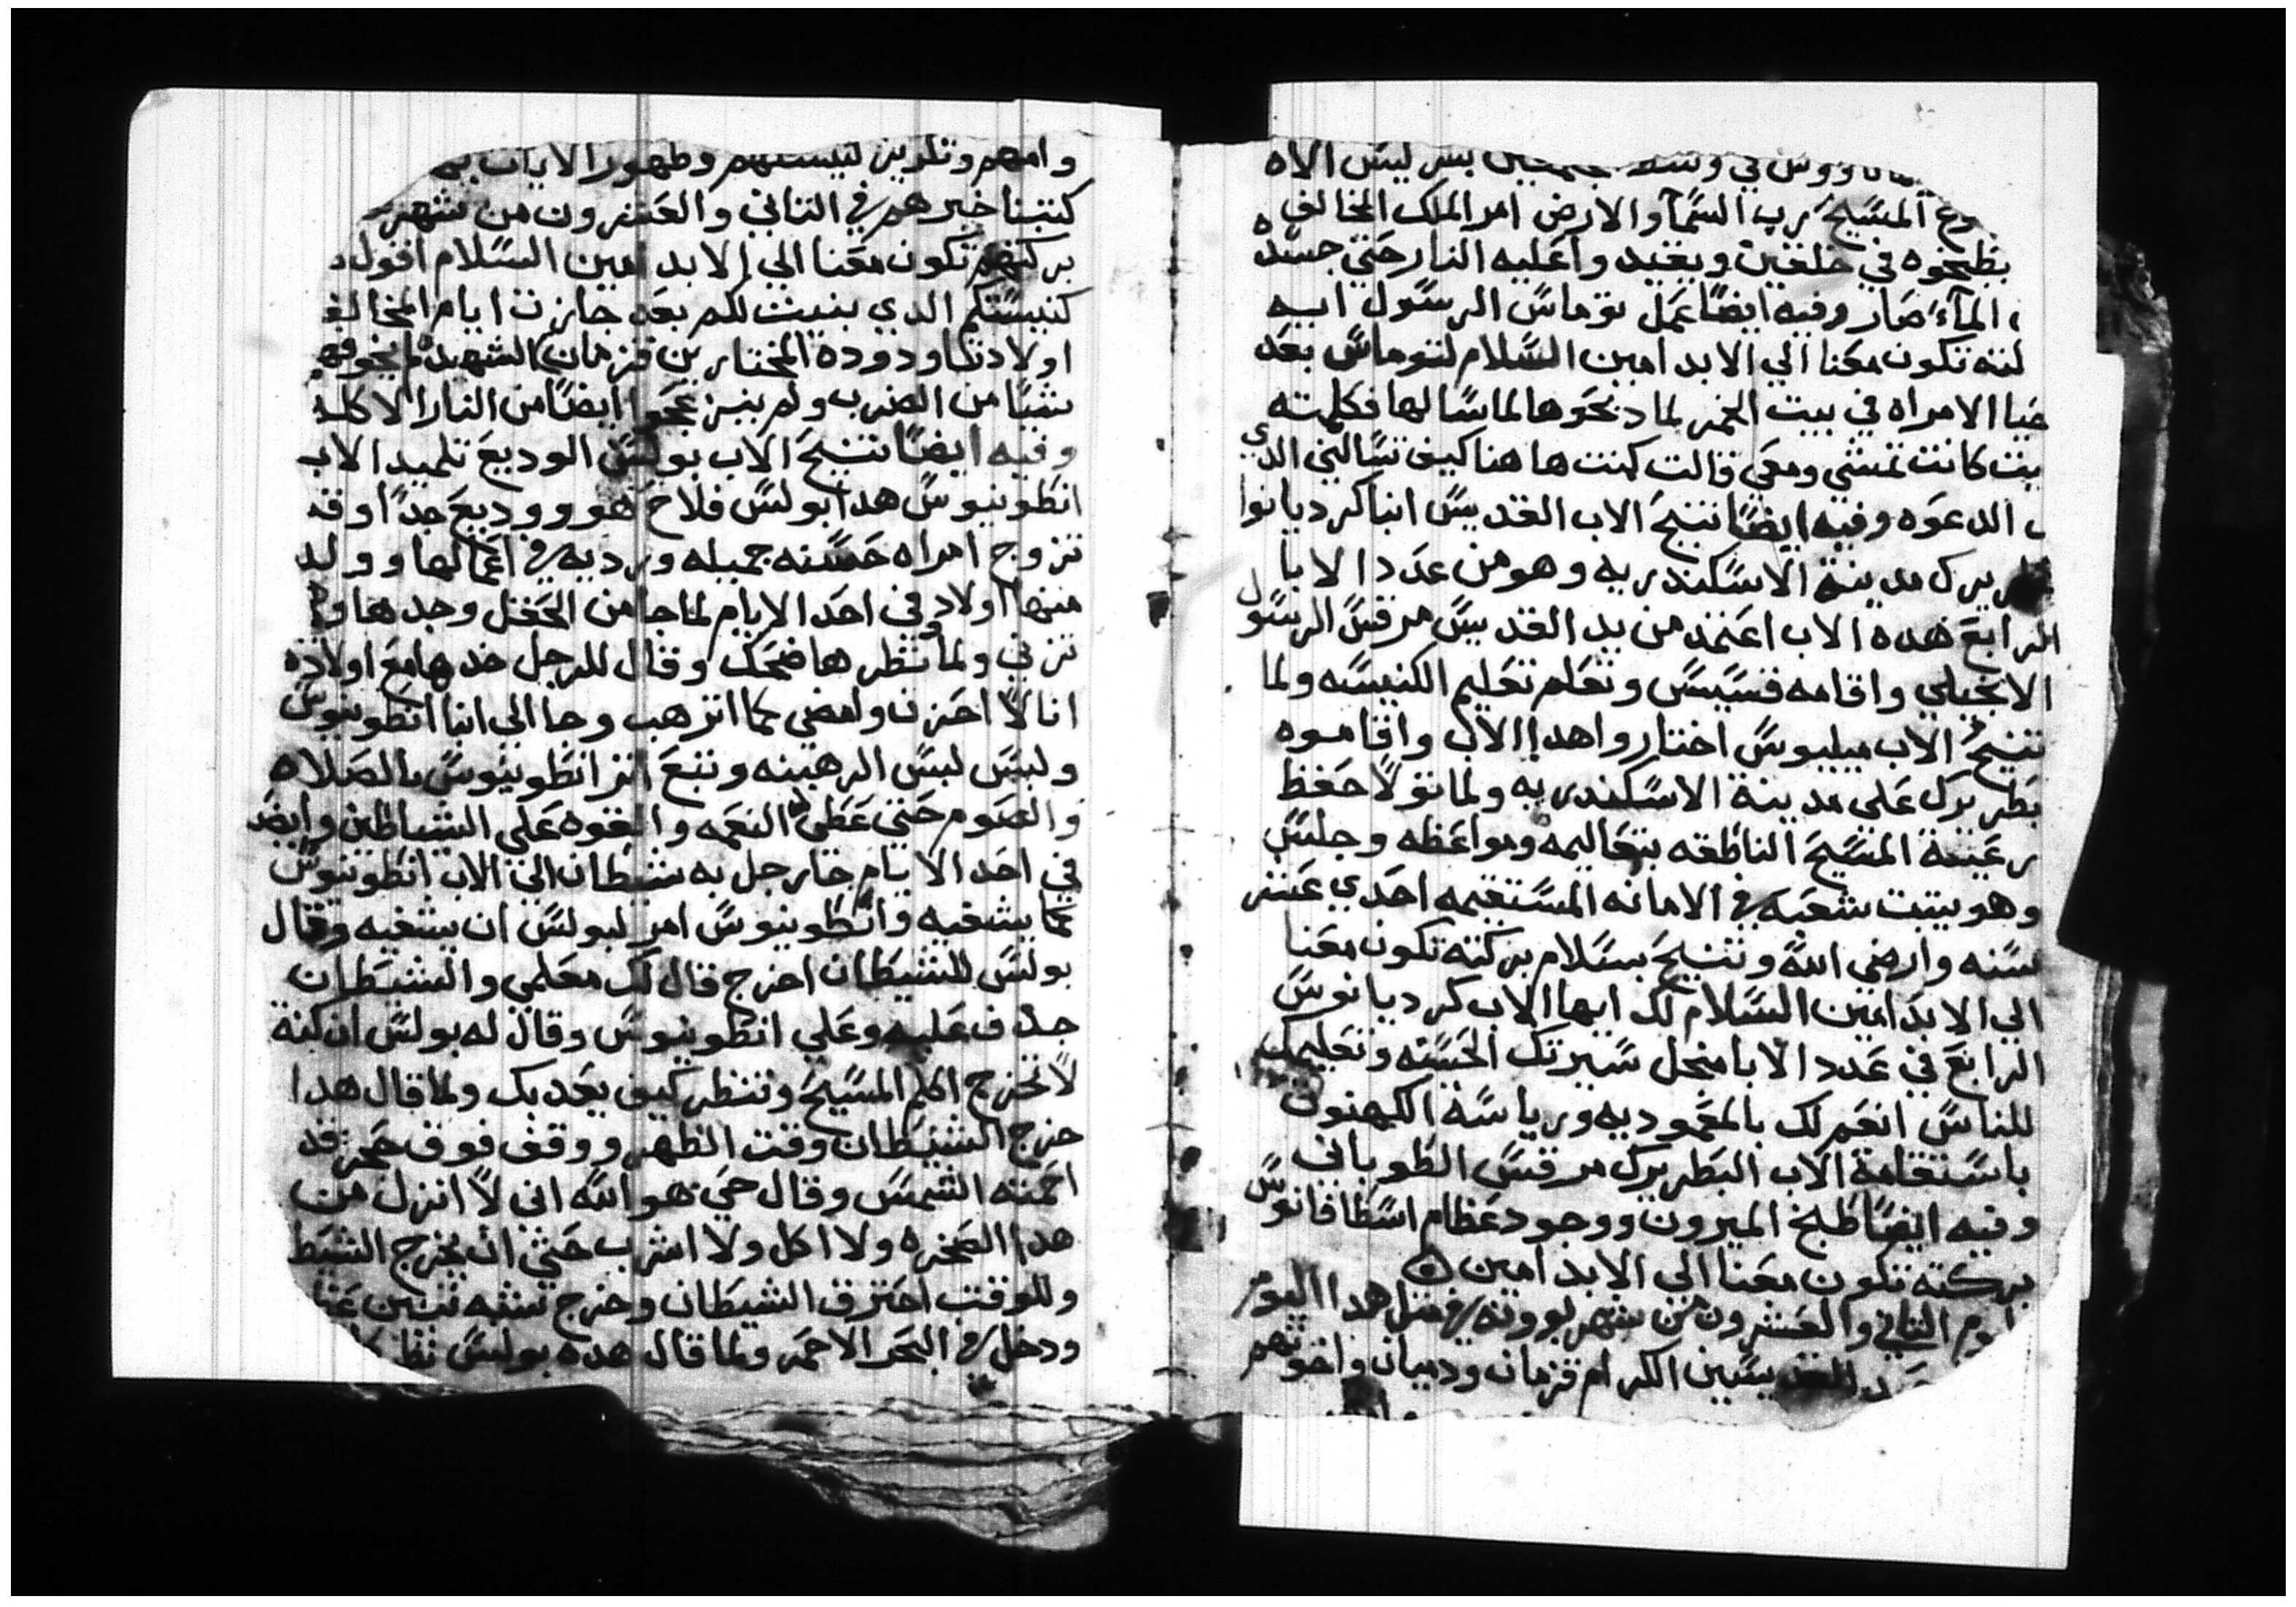 في وسط ليس الاه
المسيح رب السما والارض امر الملك المخالف
يطبخوه في خلقين ويقيد واعليه النار حتي جسده
الماء صار وفيه ايضا عمل توماس الرسول ابيه
لته تكون معنا الي الابد امين السلام لتوماس بعد
الامراه في بيت الخمر لما دبحوها لما سالها فكلمته
بنت كانت تمشي ومعي قالت كنت ها هنا كيف تسالني الدي
الدعوه وفيه ايضا تنيح الاب القديس انبا كرديانوا
يرك مدينة الاسكندريه وهو من عدد الابا
الرابع هده الاب اعتمد من يد القديس مرقس الرسول
الانجيلي واقامه قسيس وتعلم تعليم الكنيسه ولما
تنيح الاب ميليوس اختاروا هدا الاب واقاموه
بطريرك علي مدينة الاسكندريه ولما تولا حفظ
رعيتة المسيح الناطقه بتعاليمه ومواعظه وجلس
وهو يتبت شعبه في الامانه المستقيمه احدي عشر
سنه وارضي الله وتنيح بسلام بركته تكون معنا
الي الابد امين السلام لك ايها الاب كرديانوس
الرابع في عدد الابا منحل سيرتك الحسنه وتعليمك
للناس انعم لك بالمعموديه ورياسة الكهنوت
باستقامة الاب البطريرك مرقس الطوباني
وفيه ايضا طبخ الميرون ووجود عظام اسطافانوس
بركته تكون معنا الي الابد امين
اليوم التاني والعشرون من شهر بوونه في متل هدا اليوم
القديسين الكرام قزمان ودميان واخوتهم
وامهم وتكريز كنيستهم وظهور الايات
كتبنا خبرهم في التاني والعشرون من شهر
بركتهم تكون معنا الي الابد امين السلام اقول
كنيستكم الدي بنيت لكم بعد جازت ايام المخالف
اولاد تاودوده المختارين قزمان الشهيد
شيا من الضرب ولم ينزعجوا ايضا من النار الاكله
وفيه ايضا تنيح الاب بولس الوديع تلميد الاب
انطونيوس هدا بولس فلاح هو ووديع جدا وقد
تزوج امراه حسنه جميله ورديه في اعمالها وولد
منها اولاد وفي احد الايام لما جا من الحقل وجدها
تزني ولما نظرها ضحك وقال للرجل خدها مع اولاده
انا لا احزن وامضي كما اترهب وجا الي انبا انطونيوس
ولبس لبس الرهبنه وتبع اتر انطونيوس بالصلاه
والصوم حتي عطي النعمه والقوه علي الشياطين وايضا
في احد الايام جا رجل به شيطان الي الاب انطونيوس
كما يشفيه وانطونيوس امر لبولس ان يشفيه وقال
بولس للشيطان اخرج قال لك معلمي والشيطان
جدف عليه وعلي انطونيوس وقال له بولس ان كنة
لا تخرج اكلم المسيح وتنظر كيف يعدبك ولما قال هدا
خرج الشيطان وقت الظهر ووقف فوق صخر قد
احمته الشمس وقال حي هو الله اني لا انزل من
هدا الصخره ولا اكل ولا اشرب حتي ان يخرج الشيط
وللوقت احترق الشيطان وخرج شبه تنين
ودخل في البحر الاحمر ولما قال هده بولس